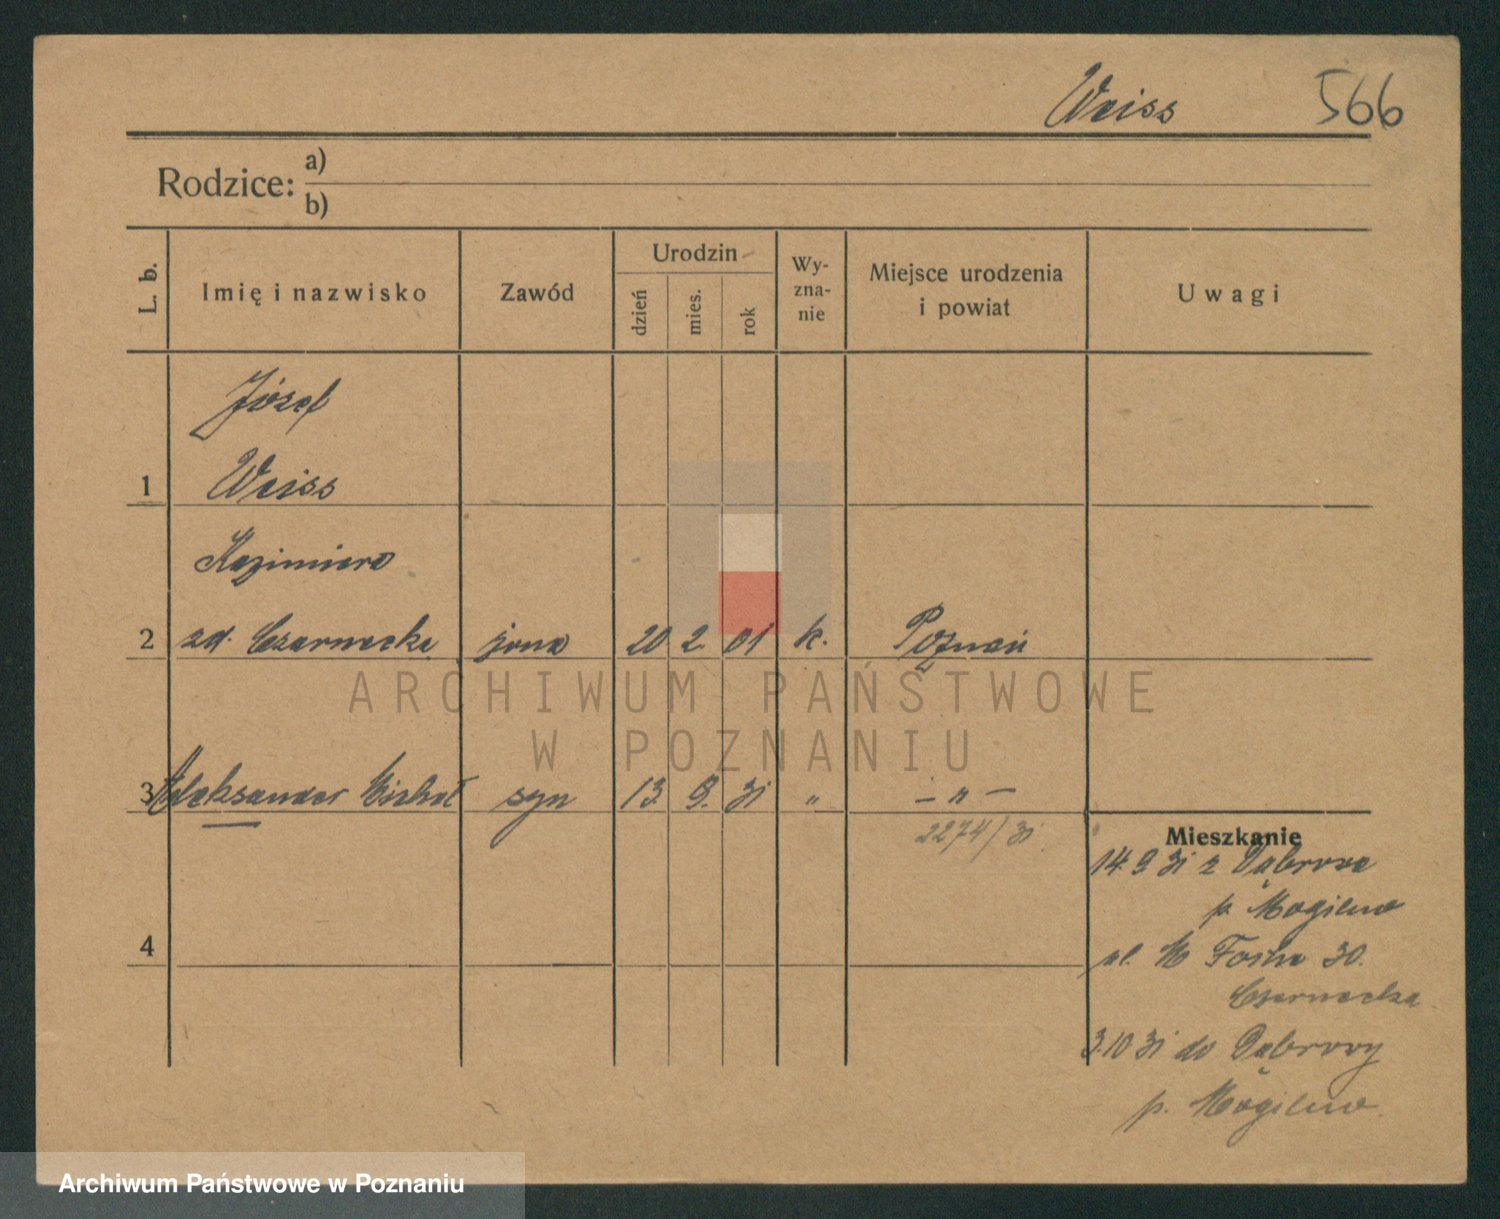 Weiss 566
Rodzice: a)
b)
L. b. Imię i nazwisko Zawód Urodzin dzień mies. rok Wy-zna-nie Miejsce urodzenia i powiat Uwagi
Józef
1 Weiss
Kazimiera
2 zd. Czarnecka żona 20 2. 01 k. Poznań
ARCHIWUM PAŃSTWOWE
W POZNANIU
3 Aleksander Michał syn 13. 9. 31 " – " –
2274/31
Mieszkanie
14.9 31 z Dąbrowa
p. Mogilno
4
ul. M Focha 30.
Czarnecka
3.10 31 do Dąbrowy
p. Mogilno.
Archiwum Państwowe w Poznaniu